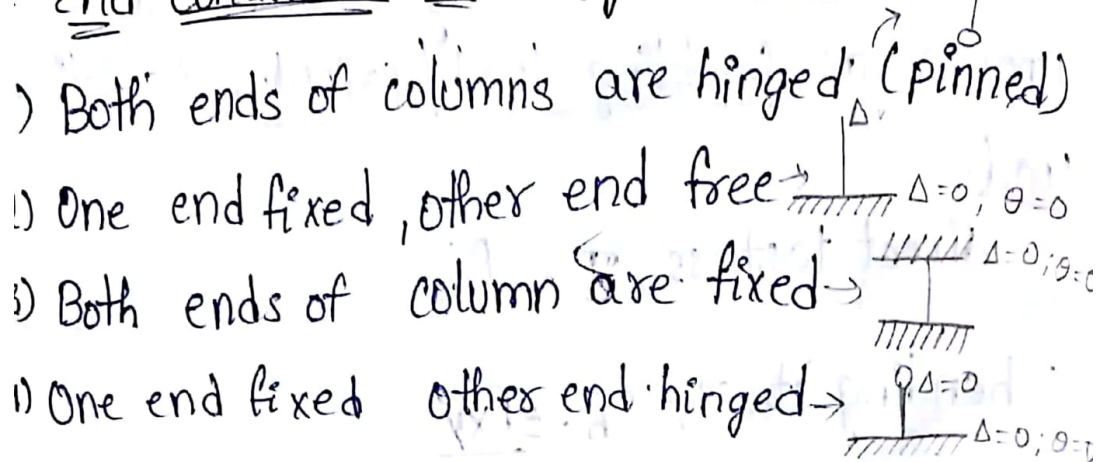 ) Both ends of columns are hinged (pinned)
) One end fixed, other end free → Δ=0, θ=0
3) Both ends of column are fixed → Δ=0; θ=
) One end fixed other end hinged → Δ=0
Δ=0; θ=